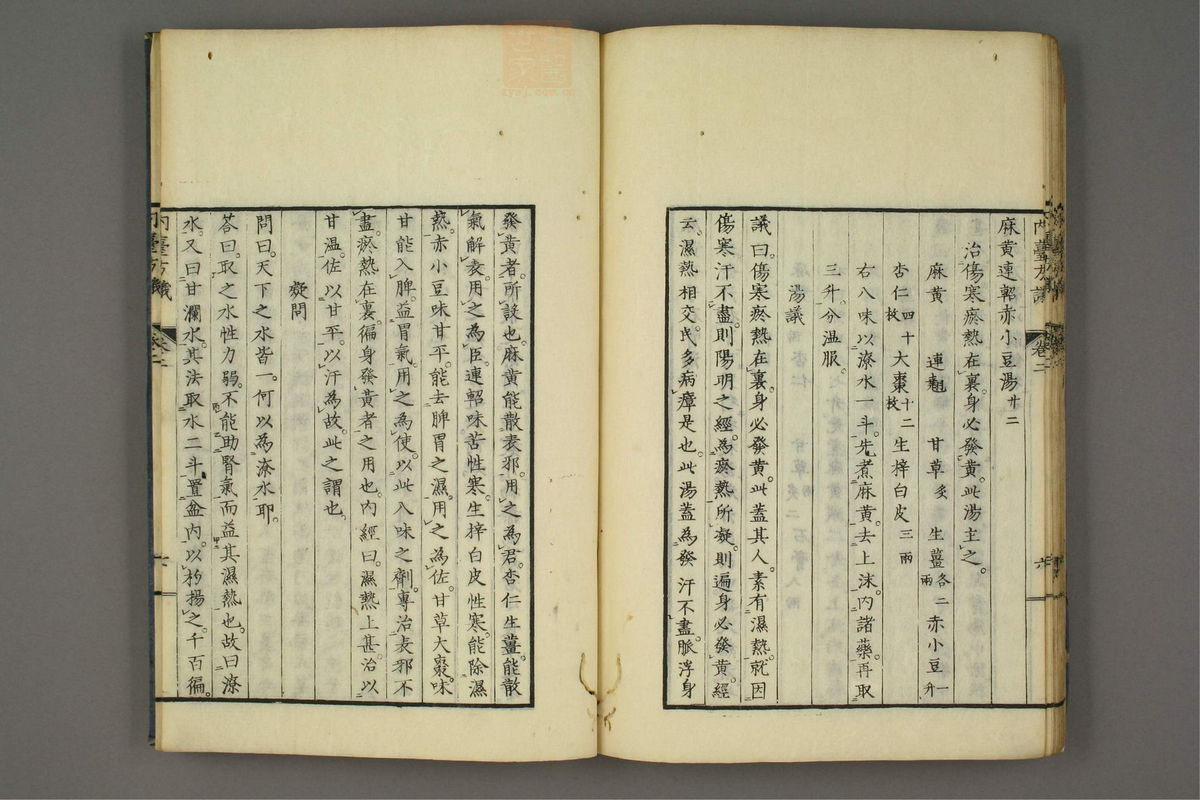 麻黄連軺赤小豆湯廿二
治傷寒瘀熱在裏。身必發黄。此湯主之。
麻黄 連翹 甘草炙 生薑各二兩 赤小豆一升
杏仁四十枚 大棗十二枚 生梓白皮三兩
右八味以潦水一斗。先煮麻黄。去上沫。内諸藥。再取
三升。分温服。
湯議
議曰。傷寒瘀熱在裏。身必發黄。此蓋其人。素有濕熱。就因
傷寒汗不盡。則陽明之經。為瘀熱所凝。則遍身必發黄。經
云。濕熱相交。民多病癉是也。此湯蓋為發汗不盡。脈浮身
發黄者。所談也。麻黄能散表邪。用之為君。杏仁生薑。能散
氣解表。用之為臣。連軺味苦性寒。生梓白皮性寒。能除濕
熱。赤小豆味甘平。能去脾胃之濕。用之為佐。甘草大棗。味
甘能入脾。益胃氣。用之為使。以此入味之劑。專治表邪不
盡。瘀熱在裏。徧身發黄者之用也。内經曰。濕熱上甚。治以
甘温。佐以甘平。以汗為故。此之謂也。
疑問
問曰。天下之水皆一。何以為潦水耶。
荅曰。取之水性力弱。不能助腎氣而益其濕熱也。故曰潦
水。又曰甘瀾水。其法取水二斗。置盆内。以杓揚之。千百徧。
内臺方議 卷二